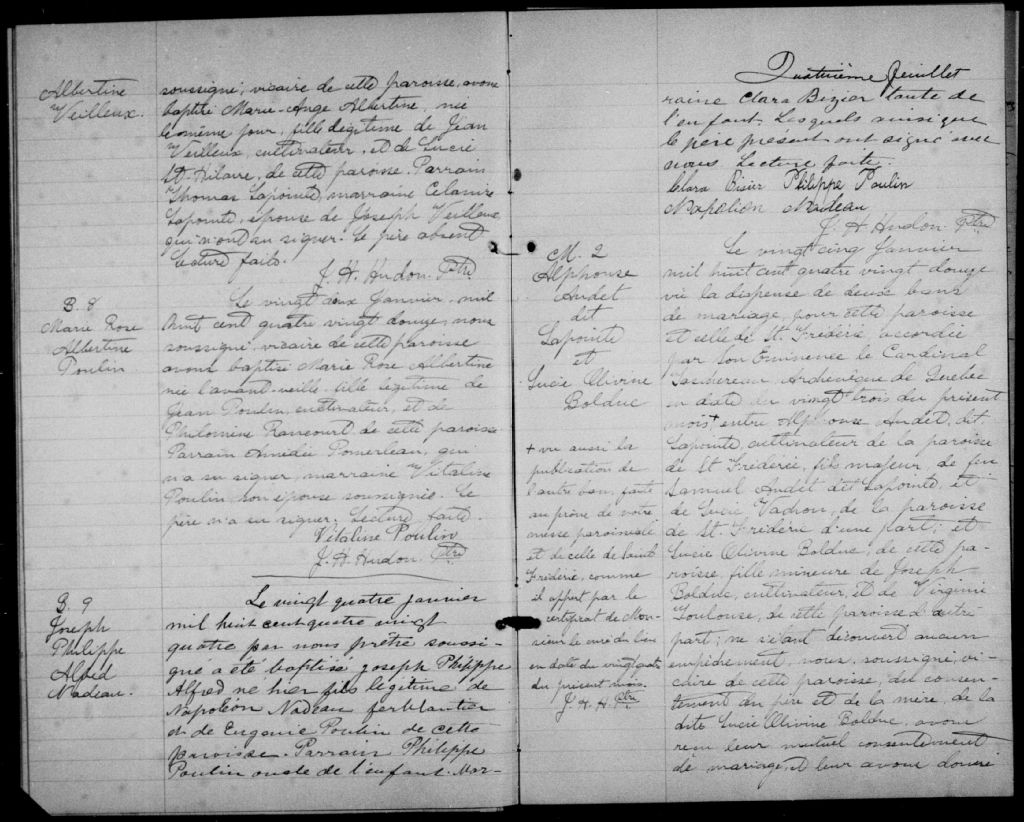 Albertine
Veilleux.
soussigné, vicaire de cette paroisse, avons
baptisé Marie-Ange Albertine, née
le même jour, fille légitime de Jean
Veilleux, cultivateur, et de Lucie
St. Hilaire, de cette paroisse. Parrain
Thomas Lapointe, marraine Célanire
Lapointe, épouse de Joseph Veilleux
qui n'ont su signer. Le père absent
Lecture faite.
J. H. Hudon. Ptre
B. 8
Marie Rose
Albertine
Poulin
Le vingt deux Janvier, mil
huit cent quatre vingt douze, nous
soussigné, vicaire de cette paroisse
avons baptisé Marie Rose Albertine
née l'avant-veille, fille légitime de
Jean Poulin, cultivateur, et de
Philomine Rancourt, de cette paroisse
Parrain Amédée Pomerleau, qui
n'a su signer, marraine Vitaline
Poulin son épouse soussignée. Le
père n'a su signer. Lecture faite.
Vitaline Poulin
J. H. Hudon. Ptre
B. 9
Joseph
Philippe
Alfred
Nadeau.
Le vingt quatre janvier
mil huit cent quatre vingt
quatre par nous prêtre soussi-
gné a été baptisé Joseph Philippe
Alfred né hier fils légitime de
Napoléon Nadeau ferblantier
et de Eugenie Poulin de cette
paroisse. Parrain Philippe
Poulin oncle de l'enfant. Mar-
Quatrième feuillet
raine Clara Bizier tante de
l'enfant. Lesquels ainsi que
le père présent ont signé avec
nous. Lecture faite.
Clara Bizier Philippe Poulin
Napoléon Nadeau
J. H. Hudon Ptre
M. 2
Alphonse
Audet
dit
Lapointe
et
Lucie Olivine
Bolduc
+ vu aussi la
publication de
l'autre ban, faite
au prône de notre
messe paroissiale
et de celle de Saint
Frédéric, comme
il appert par le
certificat de Mon-
sieur le curé du lieu
en date du vingt quatre
du présent mois.
J. H. H. Ptre
Le vingt cinq Janvier
mil huit cent quatre vingt douze
vu la dispense de deux bans
de mariage, pour cette paroisse
et celle de St. Frédéric, accordée
par Son Eminence le Cardinal
Taschereau Archevêque de Québec
en date du vingt trois du présent
mois + entre Alphonse Audet, dit
Lapointe, cultivateur de la paroisse
de St Frédéric, fils majeur, de feu
Samuel Audet dit Lapointe, et
de Lucie Vachon, de la paroisse
de St. Frédéric d'une part; et
Lucie Olivine Bolduc, de cette pa-
roisse, fille mineure de Joseph
Bolduc, cultivateur, et de Virginie
Toulouse, de cette paroisse d'autre
part; ne s'étant découvert aucun
empêchement, nous, soussigné, vi-
caire de cette paroisse, du consen-
tement du père et de la mère, de la
dite Lucie Olivine Bolduc, avons
reçu leur mutuel consentement
de mariage, et leur avons donné